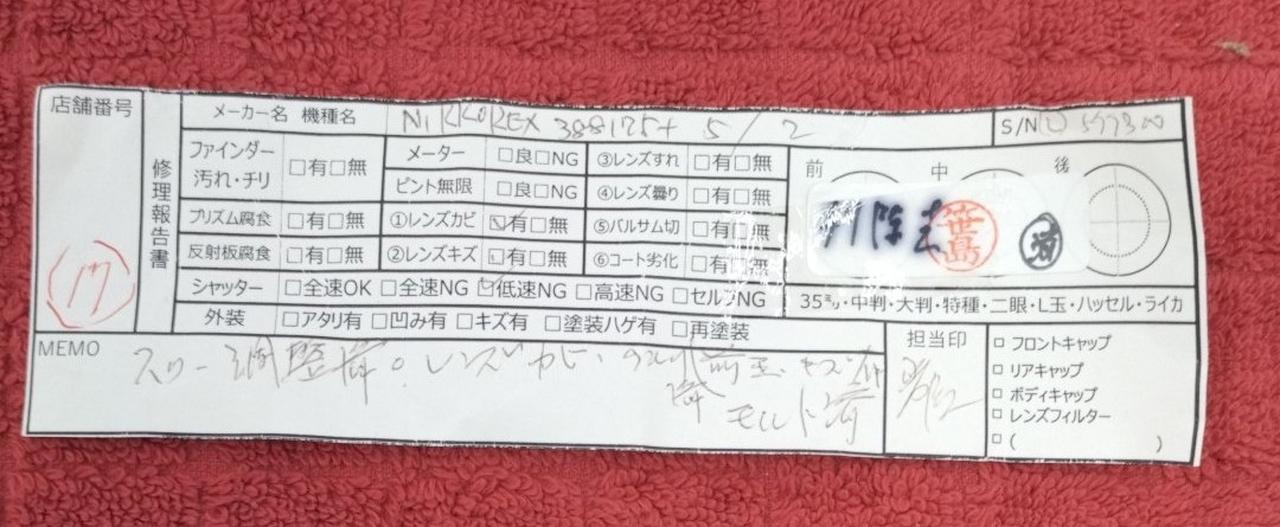 店舗番号
17
修理報告書
メーカー名 機種名 NIKKOREX 5/2 S/N
ファインダー汚れ・チリ □有□無 メーター □良□NG ③レンズすれ □有□無 前 中 後
ピント無限 □良□NG ④レンズ曇り □有□無
プリズム腐食 □有□無 ①レンズカビ □有□無 ⑤バルサム切 □有□無 笹島 済
反射板腐食 □有□無 ②レンズキズ □有□無 ⑥コート劣化 □有□無
シャッター □全速OK □全速NG □低速NG □高速NG □セルフNG 35ミリ・中判・大判・特種・二眼・L玉・ハッセル・ライカ
外装 □アタリ有 □凹み有 □キズ有 □塗装ハゲ有 □再塗装
MEMO スロー調整済。レンズカビ 前玉
モルト済
担当印
□ フロントキャップ
□ リアキャップ
□ ボディキャップ
□ レンズフィルター
□ ( )